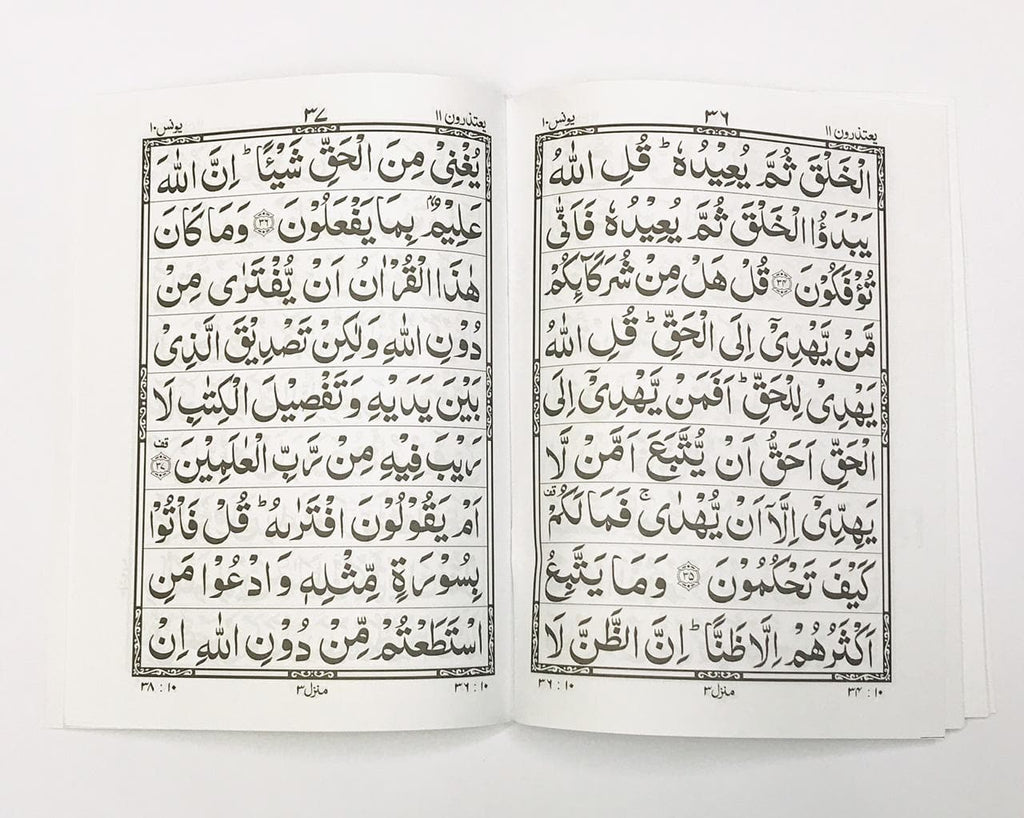 يعتذرون ١١ ٣٦ يونس ١٠
الْخَلْقَ ثُمَّ يُعِيْدُهٗ ؕ قُلِ اللّٰهُ
يَبْدَؤُا الْخَلْقَ ثُمَّ يُعِيْدُهٗ فَاَنّٰى
تُؤْفَكُوْنَ ﴿۳۴﴾ قُلْ هَلْ مِنْ شُرَكَآىِٕكُمْ
مَّنْ يَّهْدِيْۤ اِلَى الْحَقِّ ؕ قُلِ اللّٰهُ
يَهْدِيْ لِلْحَقِّ ؕ اَفَمَنْ يَّهْدِيْۤ اِلَى
الْحَقِّ اَحَقُّ اَنْ يُّتَّبَعَ اَمَّنْ لَّا
يَهِدِّيْۤ اِلَّاۤ اَنْ يُّهْدٰى ۚ فَمَا لَكُمْ قف
كَيْفَ تَحْكُمُوْنَ ﴿۳۵﴾ وَمَا يَتَّبِعُ
اَكْثَرُهُمْ اِلَّا ظَنًّا ؕ اِنَّ الظَّنَّ لَا
٣٤ : ١٠ منزل ٣ ٣٦ : ١٠
يعتذرون ١١ ٣٧ يونس ١٠
يُغْنِيْ مِنَ الْحَقِّ شَيْـًٔا ؕ اِنَّ اللّٰهَ
عَلِيْمٌۢ بِمَا يَفْعَلُوْنَ ﴿۳۶﴾ وَمَا كَانَ
هٰذَا الْقُرْاٰنُ اَنْ يُّفْتَرٰى مِنْ
دُوْنِ اللّٰهِ وَلٰكِنْ تَصْدِيْقَ الَّذِيْ
بَيْنَ يَدَيْهِ وَتَفْصِيْلَ الْكِتٰبِ لَا
رَيْبَ فِيْهِ مِنْ رَّبِّ الْعٰلَمِيْنَ ﴿۳۷﴾ قف
اَمْ يَقُوْلُوْنَ افْتَرٰىهُ ؕ قُلْ فَاْتُوْا
بِسُوْرَةٍ مِّثْلِهٖ وَادْعُوْا مَنِ
اسْتَطَعْتُمْ مِّنْ دُوْنِ اللّٰهِ اِنْ
٣٦ : ١٠ منزل ٣ ٣٨ : ١٠